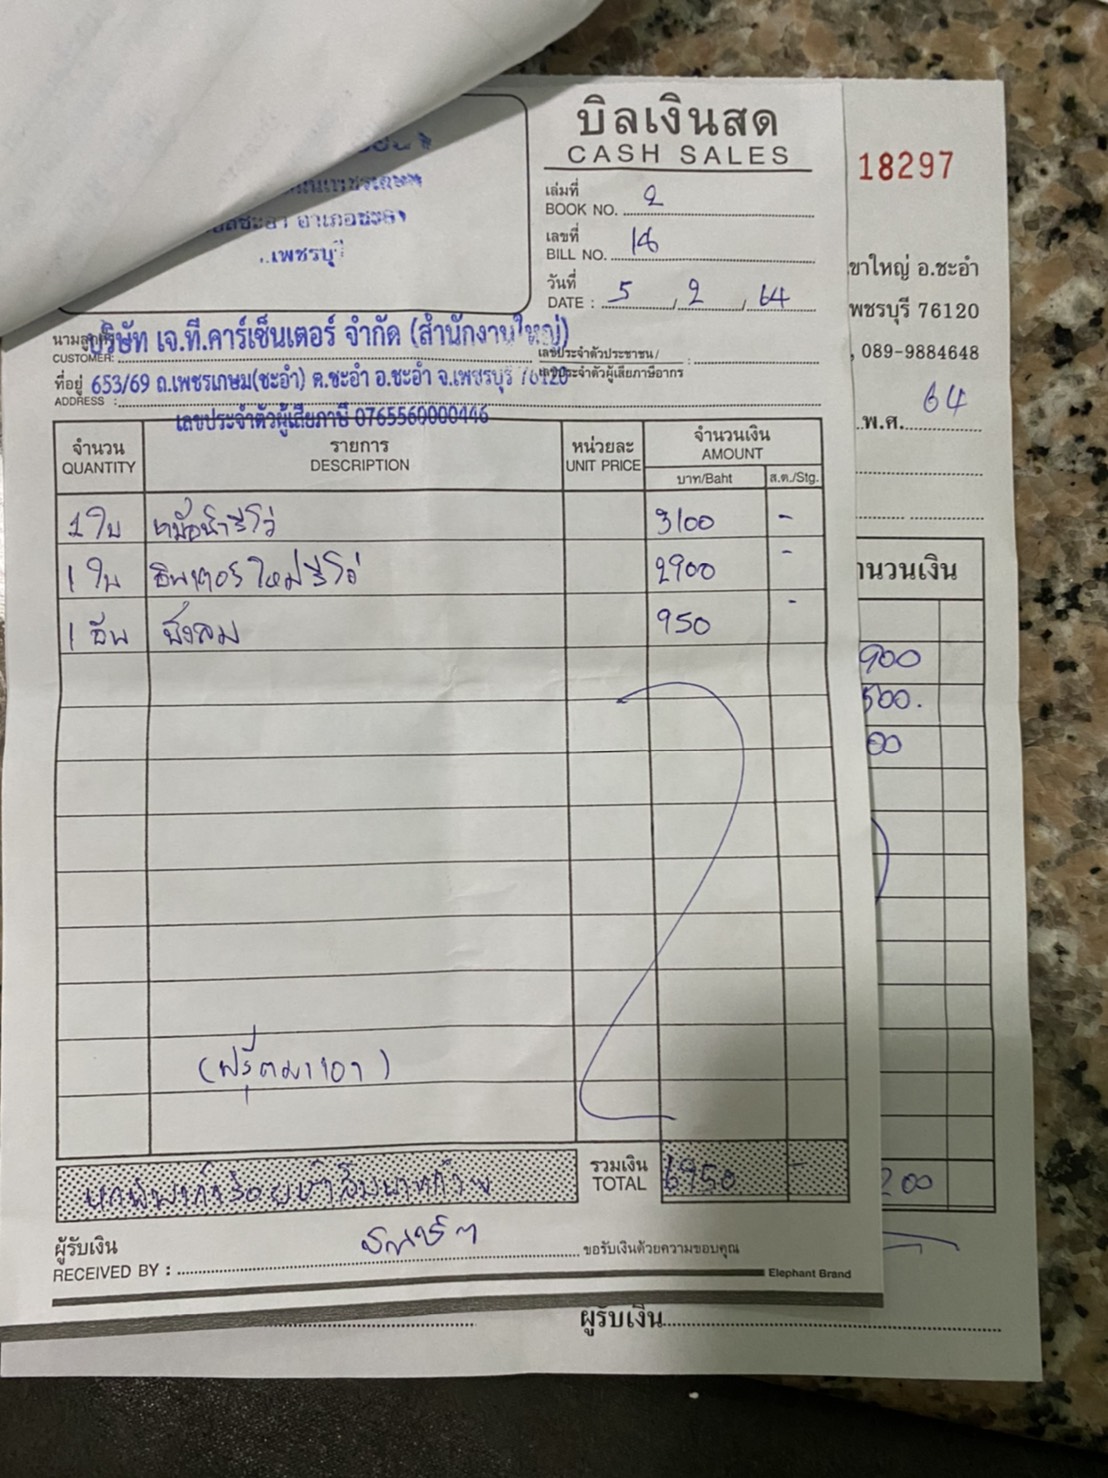 บิลเงินสด
CASH SALES
เล่มที่
BOOK NO. 2
เลขที่
BILL NO. 18
วันที่
DATE : 5 , 2 , 64
อำเภอชะอำ
เพชรบุรี
นามลูกค้า บริษัท เจ.ที.คาร์เซ็นเตอร์ จำกัด (สำนักงานใหญ่)
CUSTOMER:
เลขประจำตัวประชาชน/
เลขประจำตัวผู้เสียภาษีอากร
ที่อยู่ 653/69 ถ.เพชรเกษม(ชะอำ) ต.ชะอำ อ.ชะอำ จ.เพชรบุรี 76120
ADDRESS :
เลขประจำตัวผู้เสียภาษี 0765560000446
จำนวน รายการ หน่วยละ จำนวนเงิน
QUANTITY DESCRIPTION UNIT PRICE AMOUNT
บาท/Baht ส.ต./Stg.
1 ใบ หม้อน้ำรีโว่ 3100 -
1 ใบ อินเตอร์ใหม่รีโว่ 2900 -
1 อัน บังลม 950 -
รวมเงิน
TOTAL 6950 -
หกพันเก้าร้อยห้าสิบบาทถ้วน
ผู้รับเงิน
RECEIVED BY :
ขอรับเงินด้วยความขอบคุณ
Elephant Brand
18297
เขาใหญ่ อ.ชะอำ
เพชรบุรี 76120
, 089-9884648
พ.ศ. 64
จำนวนเงิน
900
500.
00
200
ผู้รับเงิน